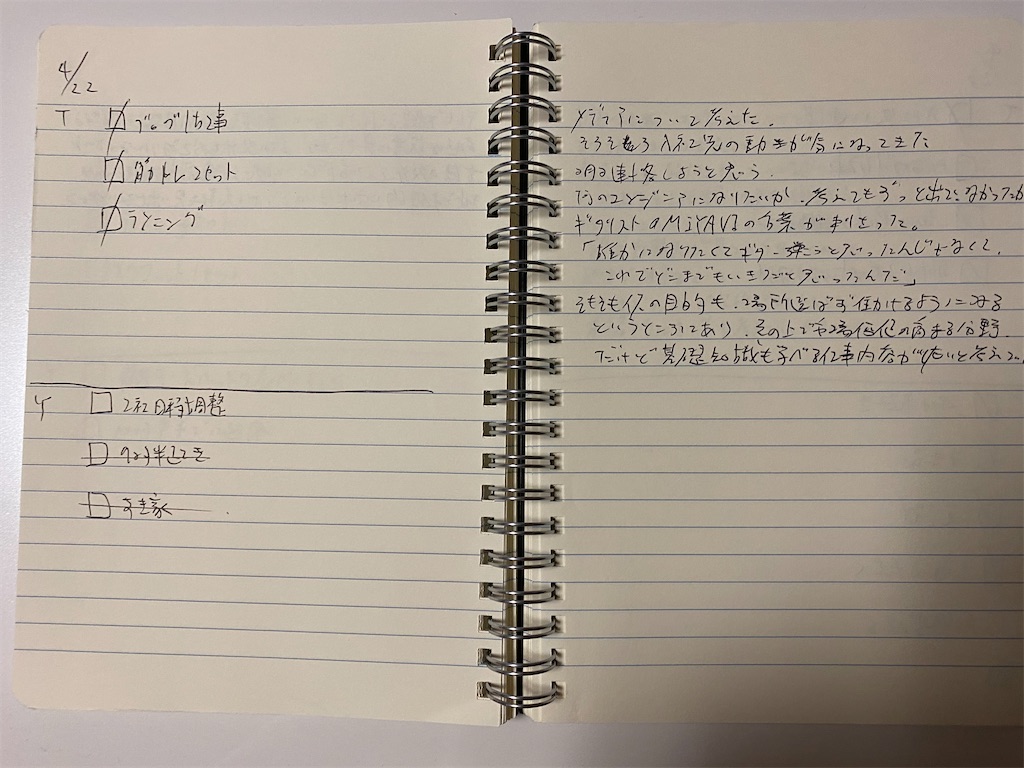 4/22
T ブログ1記事
筋トレ 1セット
ランニング
Y 2社日程調整
すき家
メディアについて考えた。
そろそろ入社先の動きが気になってきた
明日連絡しようと思う.
何のエンジニアになりたいか、考えてもずっと出てこなかったが
ギタリストのMIYAVIの言葉が刺さった。
「誰かになりたくてギター弾こうと思ったんじゃなくて、
これでどこまでもいきたいと思ったんだ」
そもそも俺の目的も、場所選ばず働けるようになる
というところにあり、その上で市場価値の高まる分野、
だけど基礎知識も学べる仕事内容がいいと考え